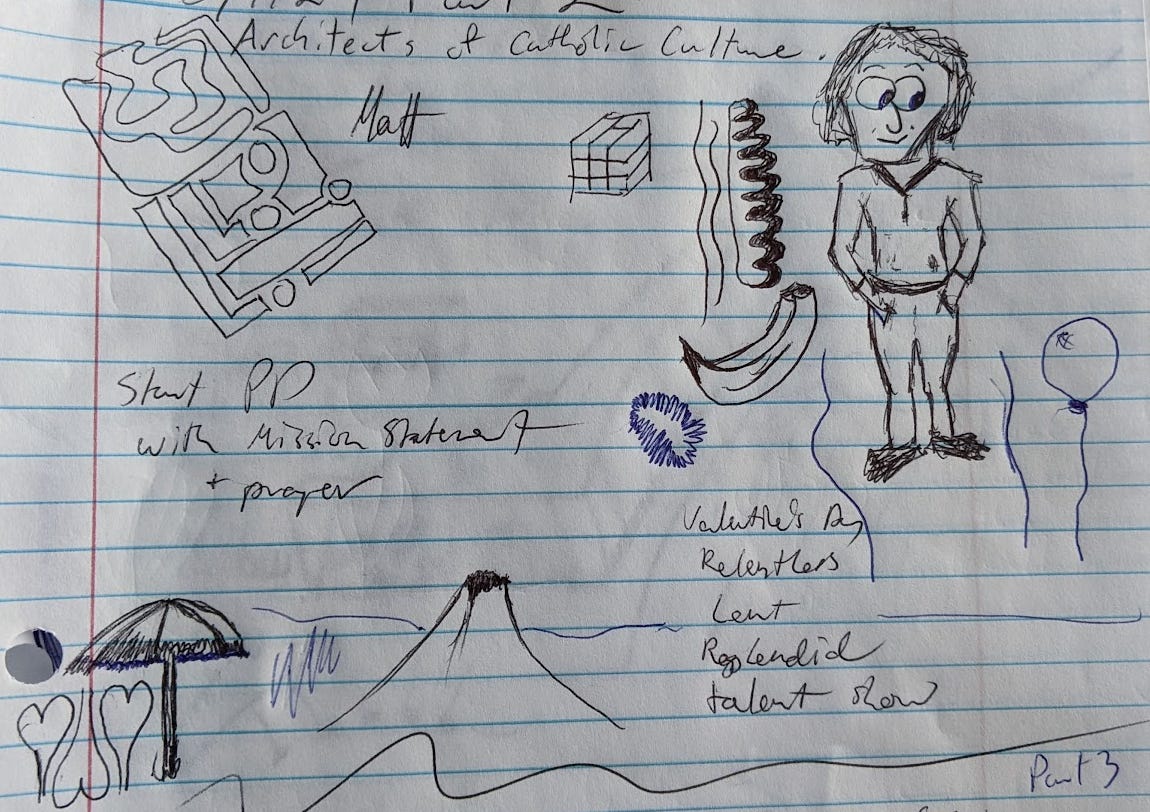 Part 2
Architects of Catholic Culture.
Matt
Start PP
with Mission Statement
+ prayer
Valentine's Day
Relentless
Lent
Resplendid
talent show
Part 3